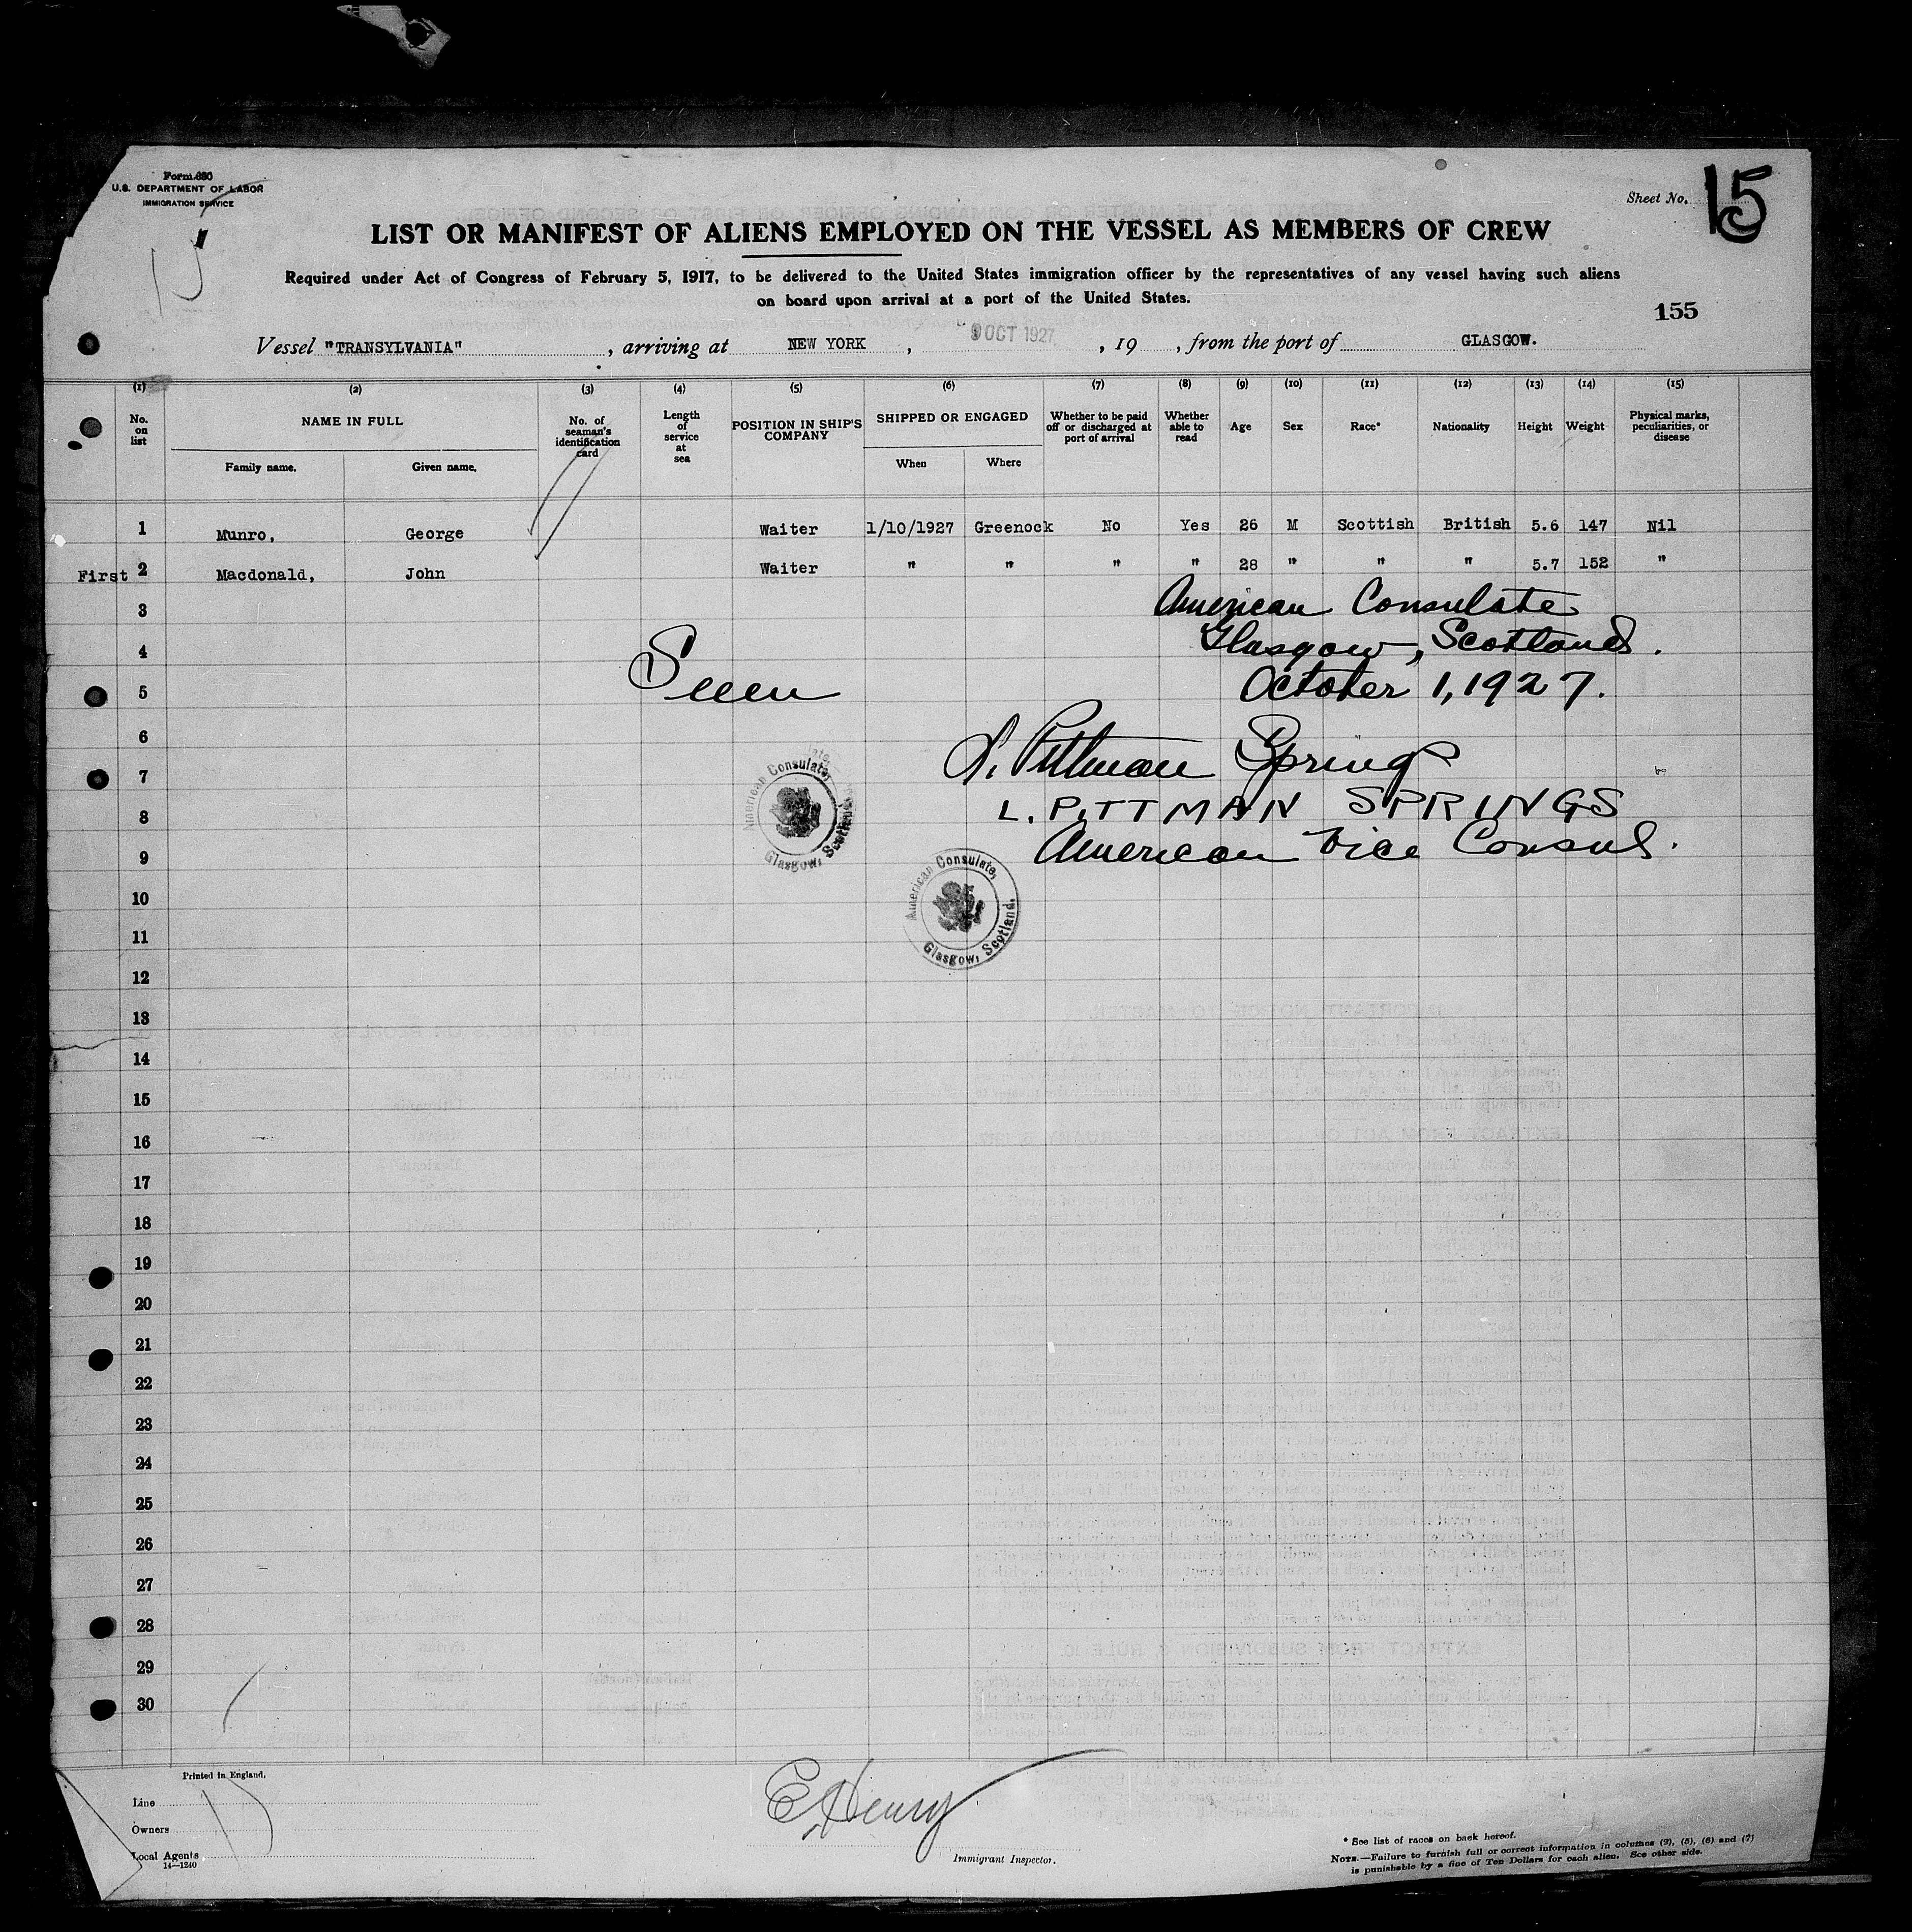 Form 680
U.S. DEPARTMENT OF LABOR
IMMIGRATION SERVICE
Sheet No. 15
LIST OR MANIFEST OF ALIENS EMPLOYED ON THE VESSEL AS MEMBERS OF CREW
Required under Act of Congress of February 5, 1917, to be delivered to the United States immigration officer by the representatives of any vessel having such aliens
on board upon arrival at a port of the United States.
155
Vessel "TRANSYLVANIA", arriving at NEW YORK, 9 OCT 1927, 19 , from the port of GLASGOW.
(1) (2) (3) (4) (5) (6) (7) (8) (9) (10) (11) (12) (13) (14) (15)
No. on list NAME IN FULL No. of seaman's identification card Length of service at sea POSITION IN SHIP'S COMPANY SHIPPED OR ENGAGED Whether to be paid off or discharged at port of arrival Whether able to read Age Sex Race* Nationality Height Weight Physical marks, peculiarities, or disease
Family name. Given name. When Where
1 Munro, George Waiter 1/10/1927 Greenock No Yes 26 M Scottish British 5.6 147 Nil
First 2 Macdonald, John Waiter " " " " 28 " " " 5.7 152 "
3 American Consulate
4 Glasgow, Scotland.
5 Seen October 1, 1927.
6
7 L. Pittman Springs
8 L. PITTMAN SPRINGS
9 American Vice Consul.
American Consulate, Glasgow, Scotland.
American Consulate, Glasgow, Scotland.
10
11
12
13
14
15
16
17
18
19
20
21
22
23
24
25
26
27
28
29
30
Printed in England.
Line
Owners
Local Agents
14—1240
E Henry
Immigrant Inspector.
* See list of races on back hereof.
NOTE.—Failure to furnish full or correct information in columns (2), (5), (6) and (7)
is punishable by a fine of Ten Dollars for each alien. See other side.